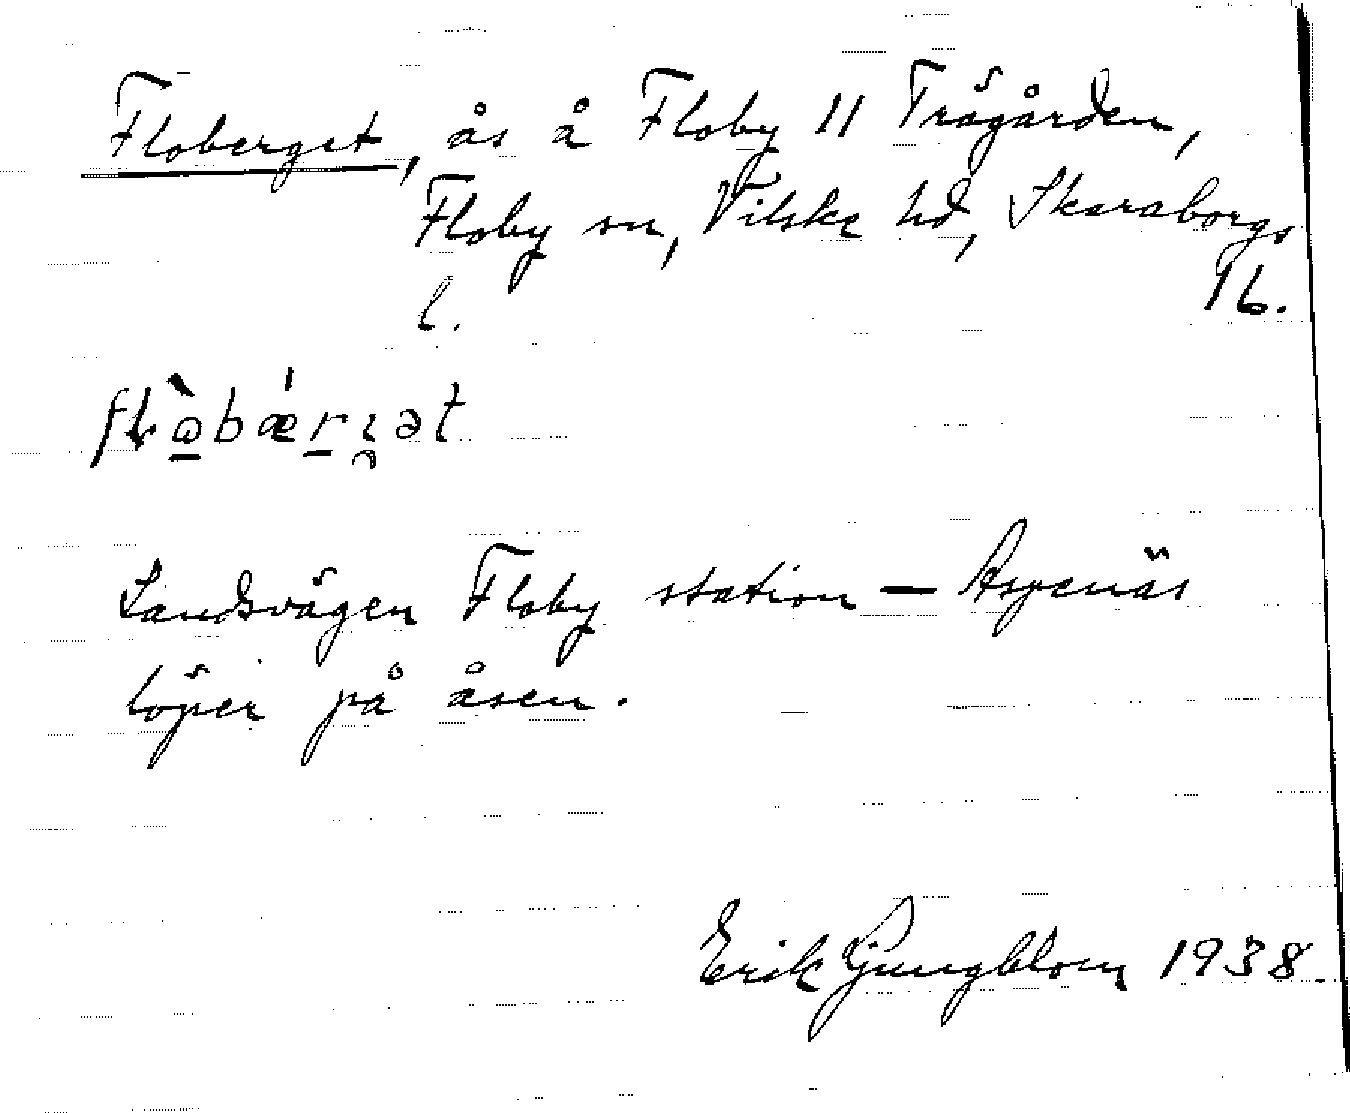 Floberget, ås å Floby 11 Trägården,
Floby sn, Vilske hd, Skaraborgs
l. 16.
Landsvägen Floby station — Aspenäs
löper på åsen.
Erik Ljungblom 1938.